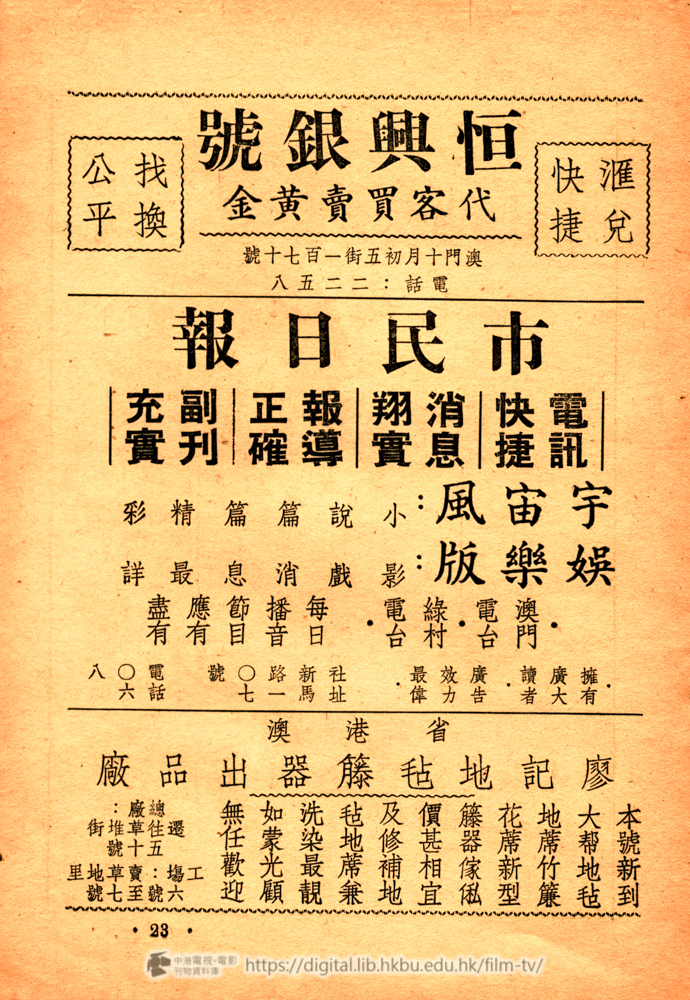 滙兌
快捷
恒興銀號
代客買賣黃金
找換
公平
澳門十月初五街一百七十號
電話：二二五八
市民日報
電訊快捷
消息翔實
報導正確
副刊充實
宇宙風：小說篇篇精彩
娛樂版：影戲消息最詳
·澳門電台·綠村電台·每日播音節目應有盡有
·擁有廣大讀者·廣告效力最偉·
社址新馬路一〇七號
電話六〇八
省港澳
廖記地毡籐器出品廠
本號新到
大帮地毡
地蓆竹簾
花蓆新型
籐器傢俬
價甚相宜
及修補地
毡地蓆兼
洗染最靚
如蒙光顧
無任歡迎
總廠：遷往草堆街五十號
工塲：賣草地里六號至七號
·23·
中港電視·電影
刊物資料庫
https://digital.lib.hkbu.edu.hk/film-tv/